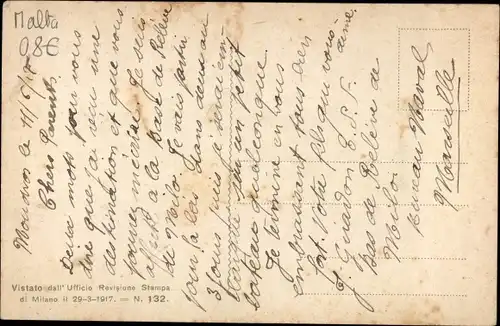 Malta
0.8€
Moudros le 11/6/17
Chers Parents
Deux mots pour vous
dire que j'ai reçu une
destination et que vous
pouvez m'écrire. Je suis
affecté à la base de Relève
de Milo. Je vais partir
pour là bas dans deux ou
3 jours puis je serai em-
barqué sur un petit
bateau quelconque
Je termine en vous
embrassant tous bien
fort. Votre fils qui vous
aime
J. T.S.F.
Bas de Relève de
Milo
Bureau Naval
Marseille
Vistato dall' Ufficio Revisione Stampa
di Milano il 29-3-1917. — N. 132.